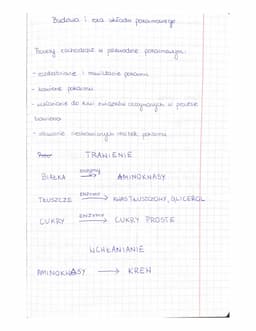 Budowa i rola układu pokarmowego
Procesy zachodzące w przewodzie pokarmowym:
- rozdrabnianie i nawilżanie pokarmu
- trawienie pokarmu
- wchłanianie do krwi związków otrzymanych w procesie
trawienia
- usuwanie niestrawionych resztek pokarmu
TRAWIENIE
BIAŁKA enzymy → AMINOKWASY
TŁUSZCZE enzymy → KWAS TŁUSZCZOWY, GLICEROL
CUKRY enzymy → CUKRY PROSTE
WCHŁANIANIE
AMINOKWASY → KREW